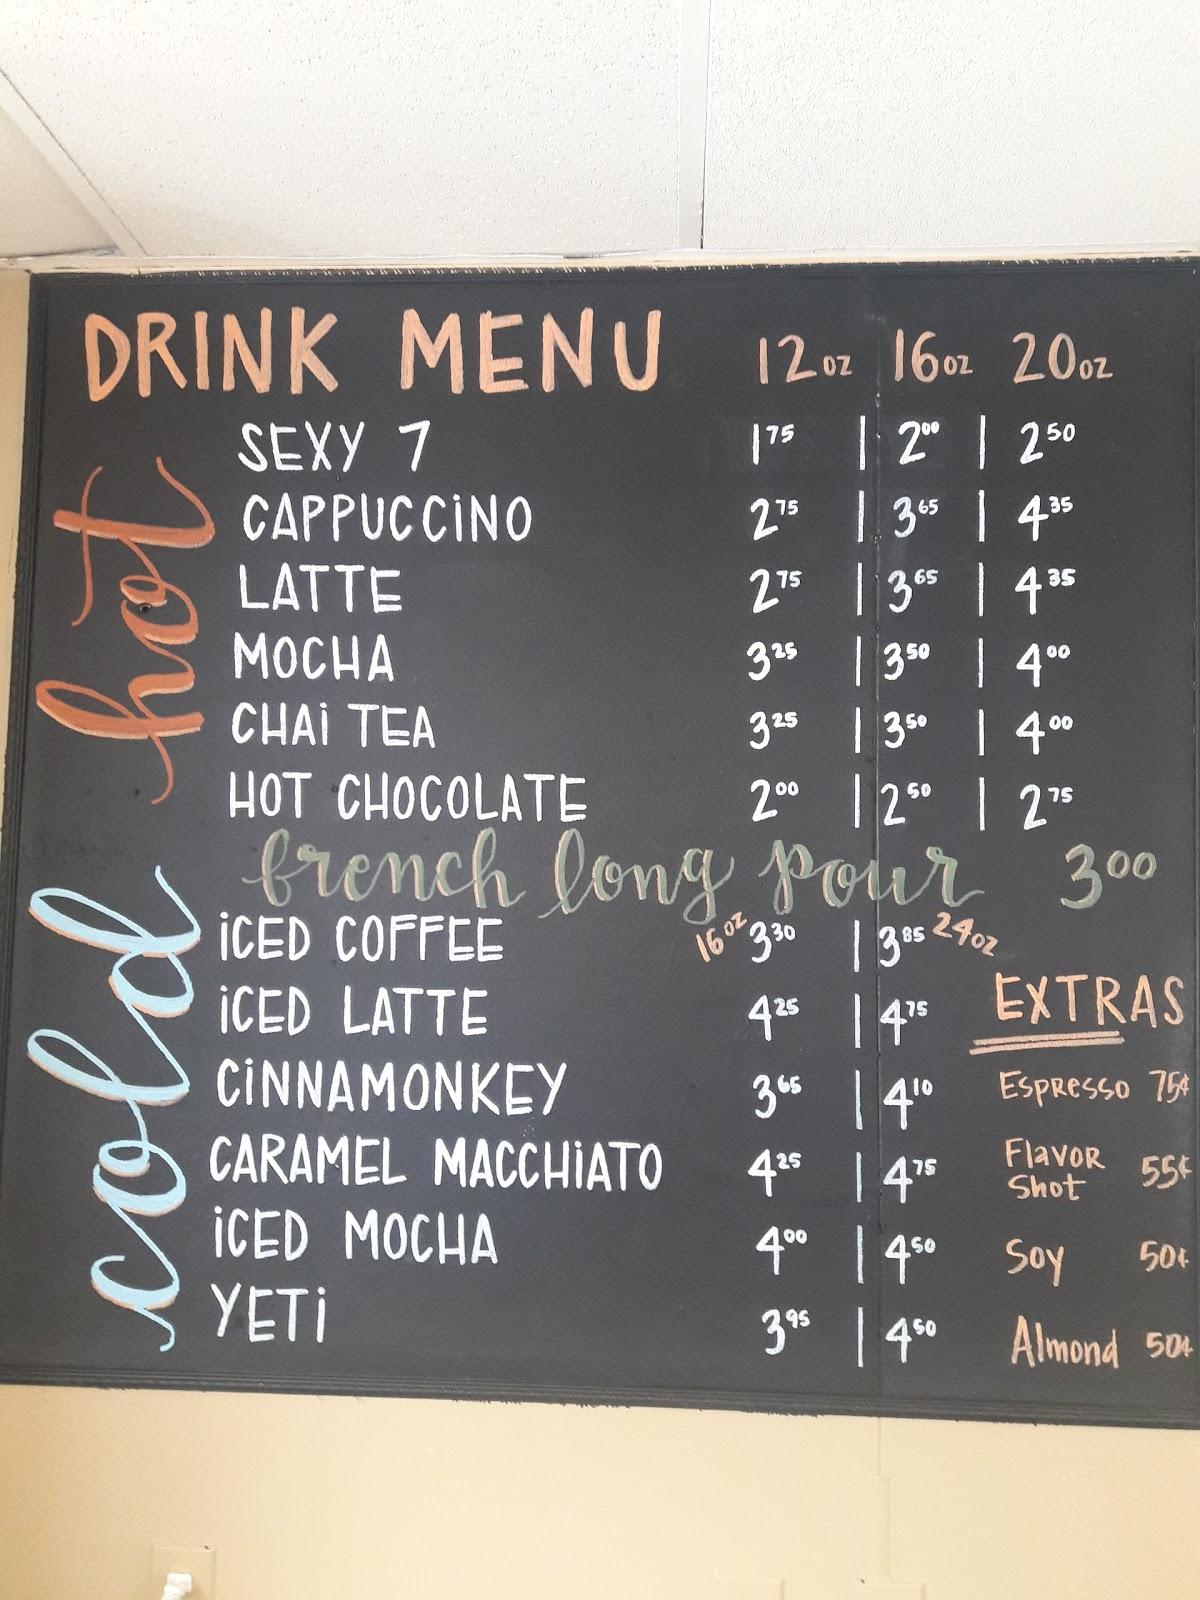 DRINK MENU 12oz 16oz 20oz
hot
SEXY 7 1 75 | 2 00 | 2 50
CAPPUCCiNO 2 75 | 3 65 | 4 35
LATTE 2 75 | 3 65 | 4 35
MOCHA 3 25 | 3 50 | 4 00
CHAi TEA 3 25 | 3 50 | 4 00
HOT CHOCOLATE 2 00 | 2 50 | 2 75
french long pour 3 00
cold
iCED COFFEE 16oz 3 30 | 3 85 24oz
iCED LATTE 4 25 | 4 75
CiNNAMONKEY 3 65 | 4 10
CARAMEL MACCHiATO 4 25 | 4 75
iCED MOCHA 4 00 | 4 50
YETi 3 95 | 4 50
EXTRAS
Espresso 75¢
Flavor
Shot 55¢
Soy 50¢
Almond 50¢